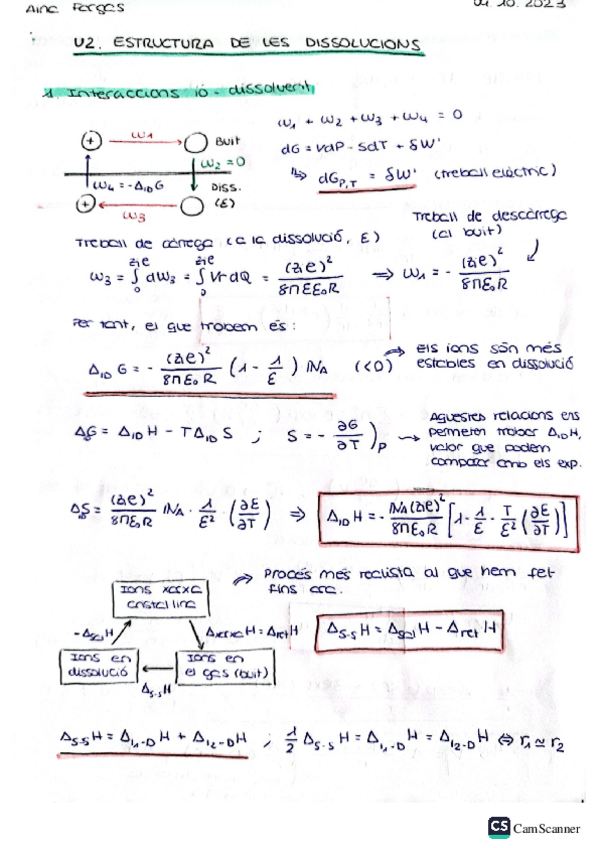 Aina Forgas
04.10.2023
U2. ESTRUCTURA DE LES DISSOLUCIONS
1. Interaccions ió - dissolvent
+ ω1 BUIT
ω4 = -Δ1D G
ω2 = 0
DISS. (ε)
+ ω3
ω1 + ω2 + ω3 + ω4 = 0
dG = VdP - SdT + δW'
↳ dG P,T = δW' (treball elèctric)
Treball de càrrega (a la dissolució, ε)
Treball de descàrrega (al buit)
ω3 = ∫₀^{z1e} dω3 = ∫₀^{z1e} Vr dQ = (z1e)² / 8πεε₀R ⇒ ω1 = - (z1e)² / 8πε₀R
Per tant, el que trobem és:
Δ1D G = - (z1e)² / 8πε₀R (1 - 1/ε) NA (<0) ⇒ Els ions són més estables en dissolució
ΔG = Δ1D H - TΔ1D S ; S = - ∂G/∂T )P → Aquestes relacions ens
permeten trobar Δ1D H,
valor que podem
comparar amb els exp.
ΔS = (z1e)² / 8πε₀R NA · 1/ε² · (∂ε/∂T) ⇒ Δ1D H = - NA(z1e)² / 8πε₀R [1 - 1/ε - T/ε² (∂ε/∂T)]
⇒ Procés més realista al que hem fet
fins ara.
Ions xarxa
cristal·lina
-Δsol H
Δxarxa H = Δret H
Δs-s H = Δsol H - Δret H
Ions en
dissolució
Ions en
el gas (buit)
Δs-s H
Δs-s H = Δ1,-D H + Δ12-D H ; 1/2 Δs-s H = Δ1,-D H = Δ12-D H ⇔ r1 ≃ r2
CS CamScanner